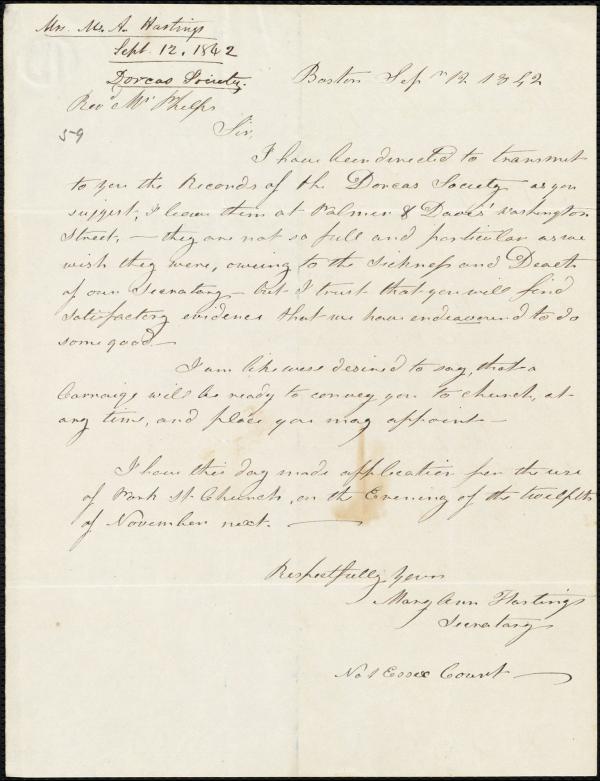 Mrs. M. A. Hastings
Sept. 12. 1842
Dorcas Society.
Boston Sepr 12 1842
Revd Mr Phelps
59
Sir,
I have been directed to transmit
to you the Records of the Dorcas Society as you
suggest, I leave them at Palmer & Davis' Washington
Street, — they are not so full and particular as we
wish they were, owing to the sickness and Death
of our Secretary — but I trust that you will find
satisfactory evidence that we have endeavourd to do
some good —
I am likewise desired to say, that a
Carraige will be ready to convey you to church, at
any time, and place you may appoint —
I have this day made application for the use
of Park St Church, on the Evening of the twelfth
of November next. —
Respectfully Yours
Mary Ann Hastings
Secratary
No 1 Essex Court —